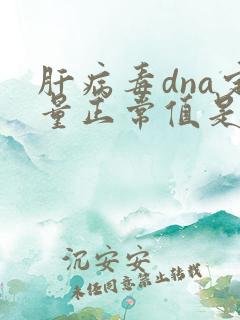 肝病毒dna定
量正常值是
沉安安
未经同意禁止转载